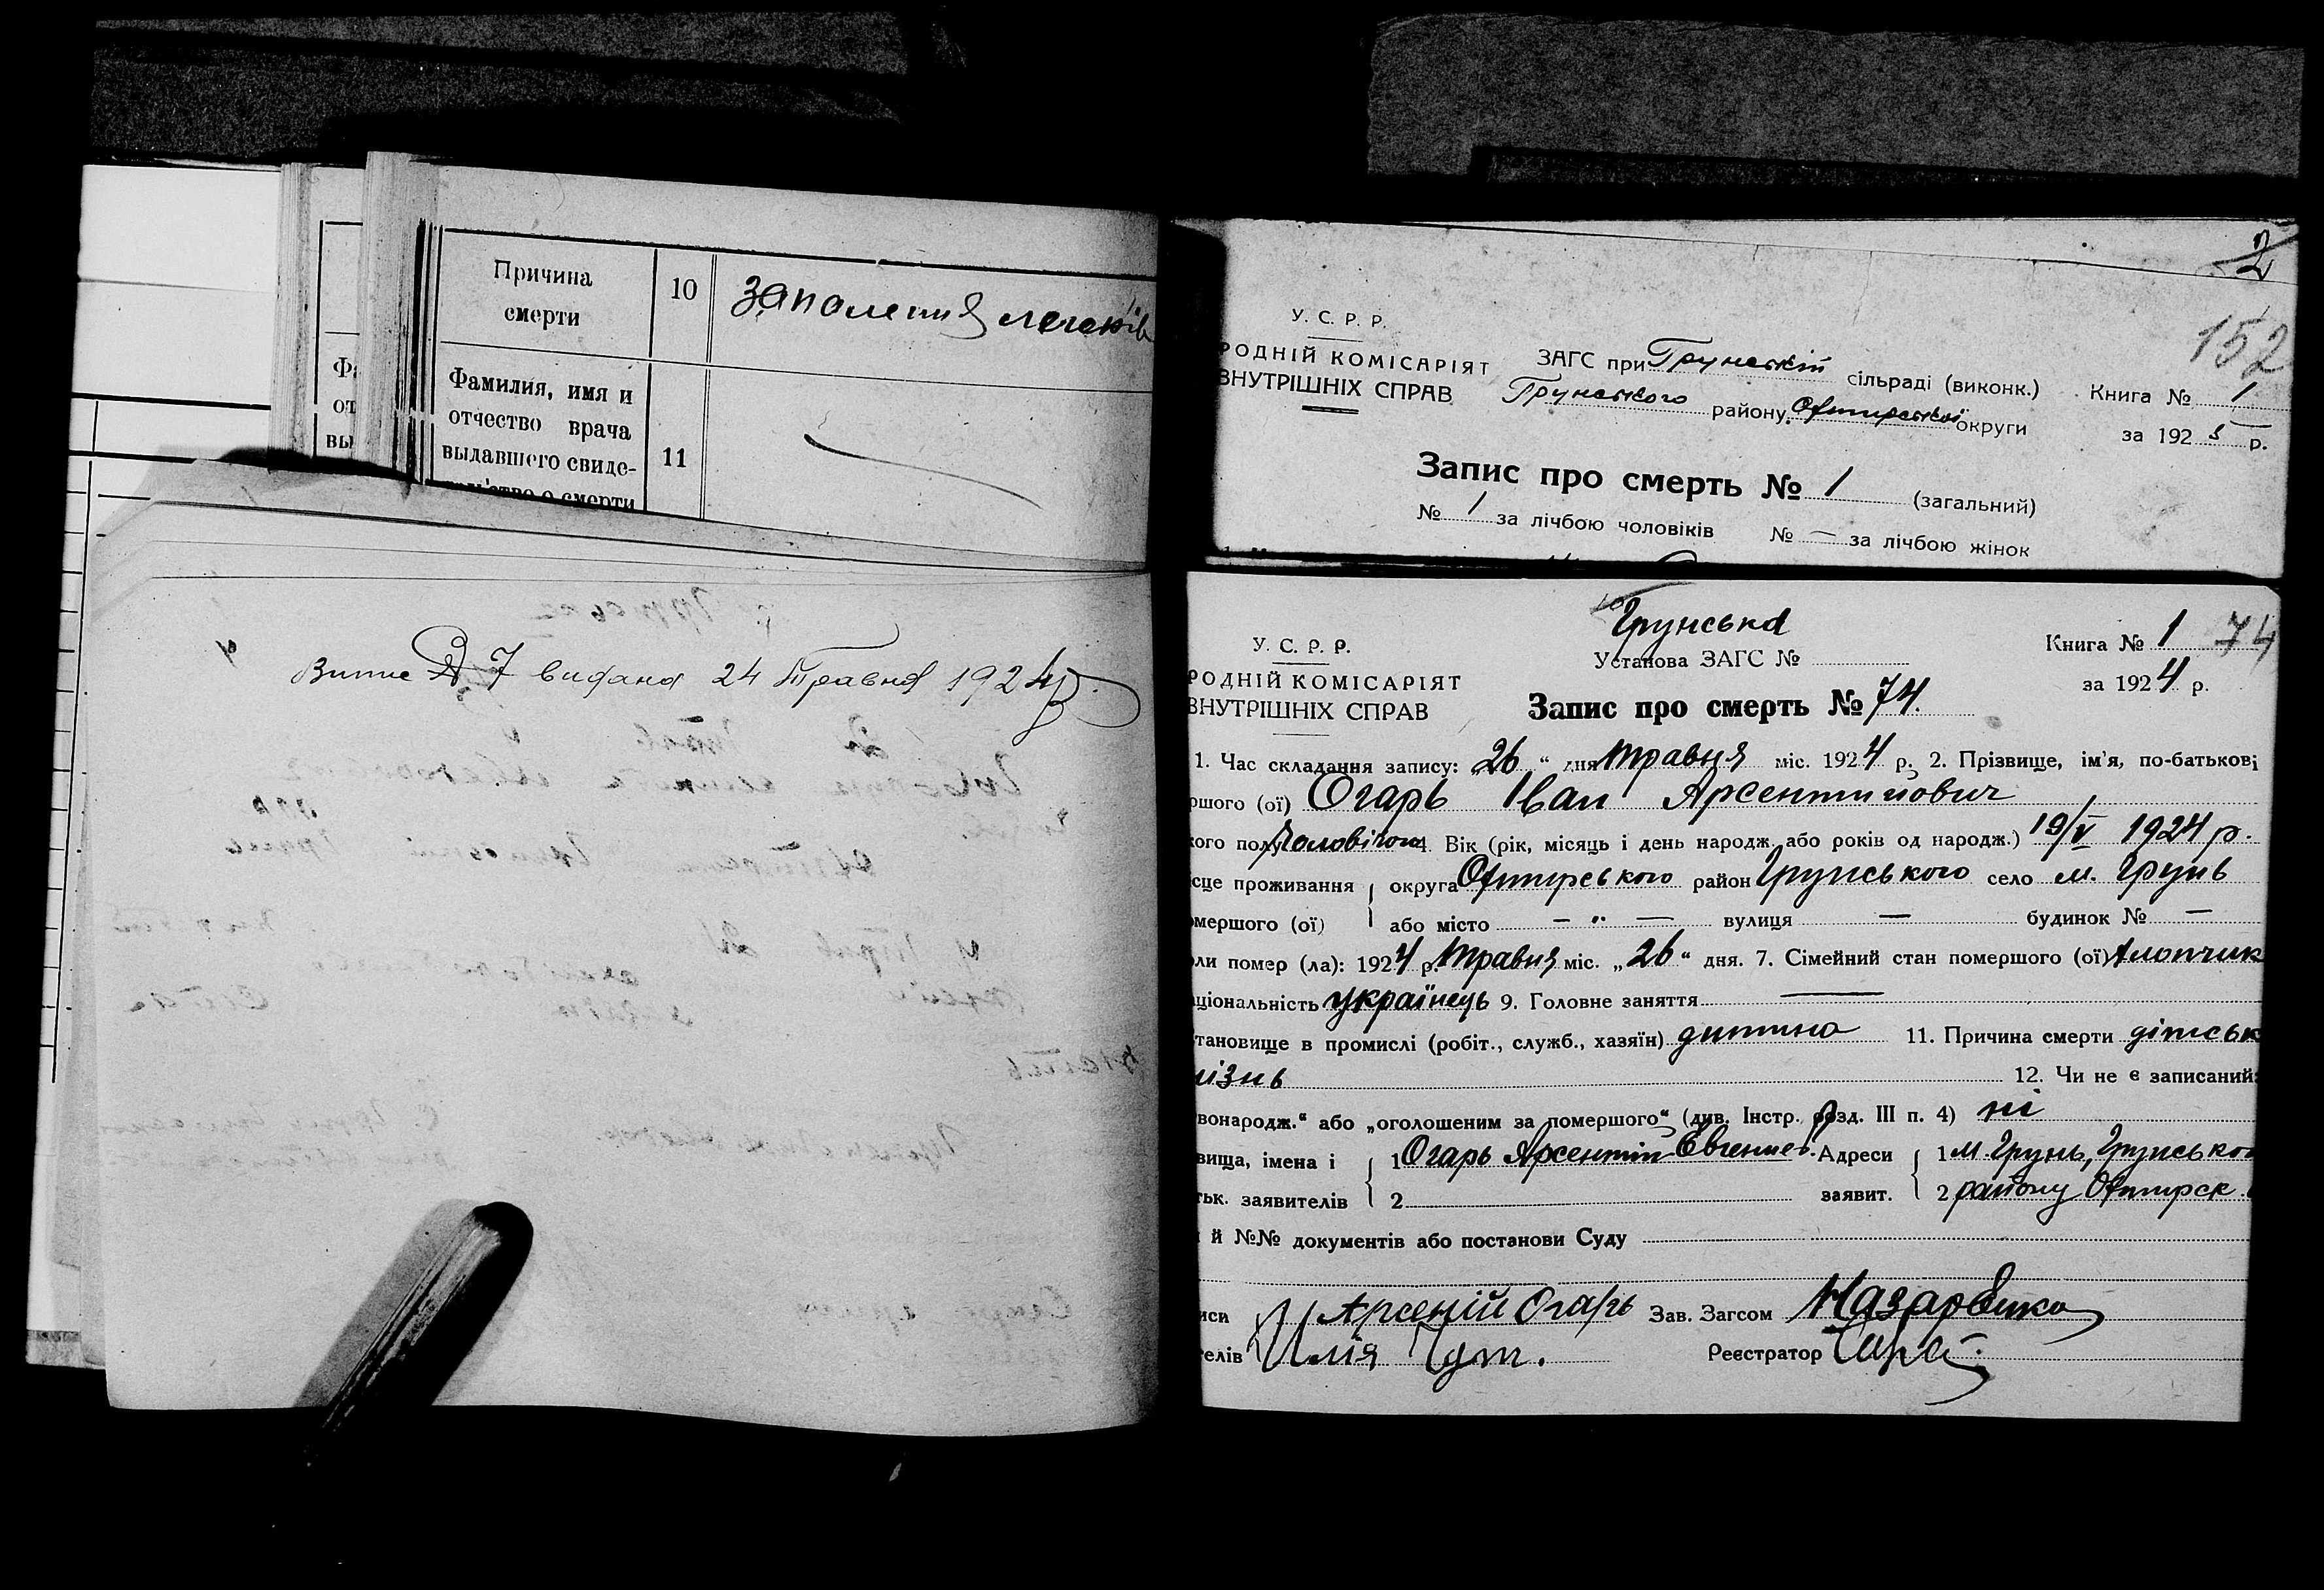 Причина
смерти
10
запалення легенів
Фамилия, имя и
отчество врача
выдавшего свиде-
о смерти
11
Фа
от
вы
Випис № 7 видана 24 Травня 1924 р.
2
152
У. С. Р. Р.
РОДНІЙ КОМІСАРІЯТ
ВНУТРІШНІХ СПРАВ
ЗАГС при Грунській сільраді (виконк.)
Грунського району Охтирської округи
Книга № 1
за 1925 р.
Запис про смерть № 1 (загальний)
№ 1 за лічбою чоловіків № — за лічбою жінок
Грунська
Установа ЗАГС №
Книга № 1 74
за 1924 р.
У. С. Р. Р.
РОДНІЙ КОМІСАРІЯТ
ВНУТРІШНІХ СПРАВ
Запис про смерть № 74.
1. Час складання запису: „26“ дня травня міс. 1924 р. 2. Прізвище, ім'я, по-батькові
ршого (ої) Огарь Іван Арсентийович
кого полу Чоловічого 4. Вік (рік, місяць і день народж. або років од народж.) 19/V 1924 р.
сце проживання округа Охтирського район Грунського село м. Грунь
омершого (ої) або місто — „ — вулиця — будинок № —
оли помер (ла): 1924 р. Травня міс. „26“ дня. 7. Сімейний стан помершого (ої) хлопчик
ціональність українець 9. Головне заняття —
тановище в промислі (робіт., служб., хазяїн) дитина 11. Причина смерти дітськ
лізнь 12. Чи не є записаний:
вонародж.“ або „оголошеним за помершого“ (див. Інстр. розд. III п. 4) ні
вища, імена і 1 Огарь Арсентій Евгениев. Адреси 1 м. Грунь, Грунського
тьк. заявителів 2 заявит. 2 району Охтирск.
й №№ документів або постанови Суду
иси Арсеній Огарь Зав. Загсом Назаренко
елів Илія Реєстратор